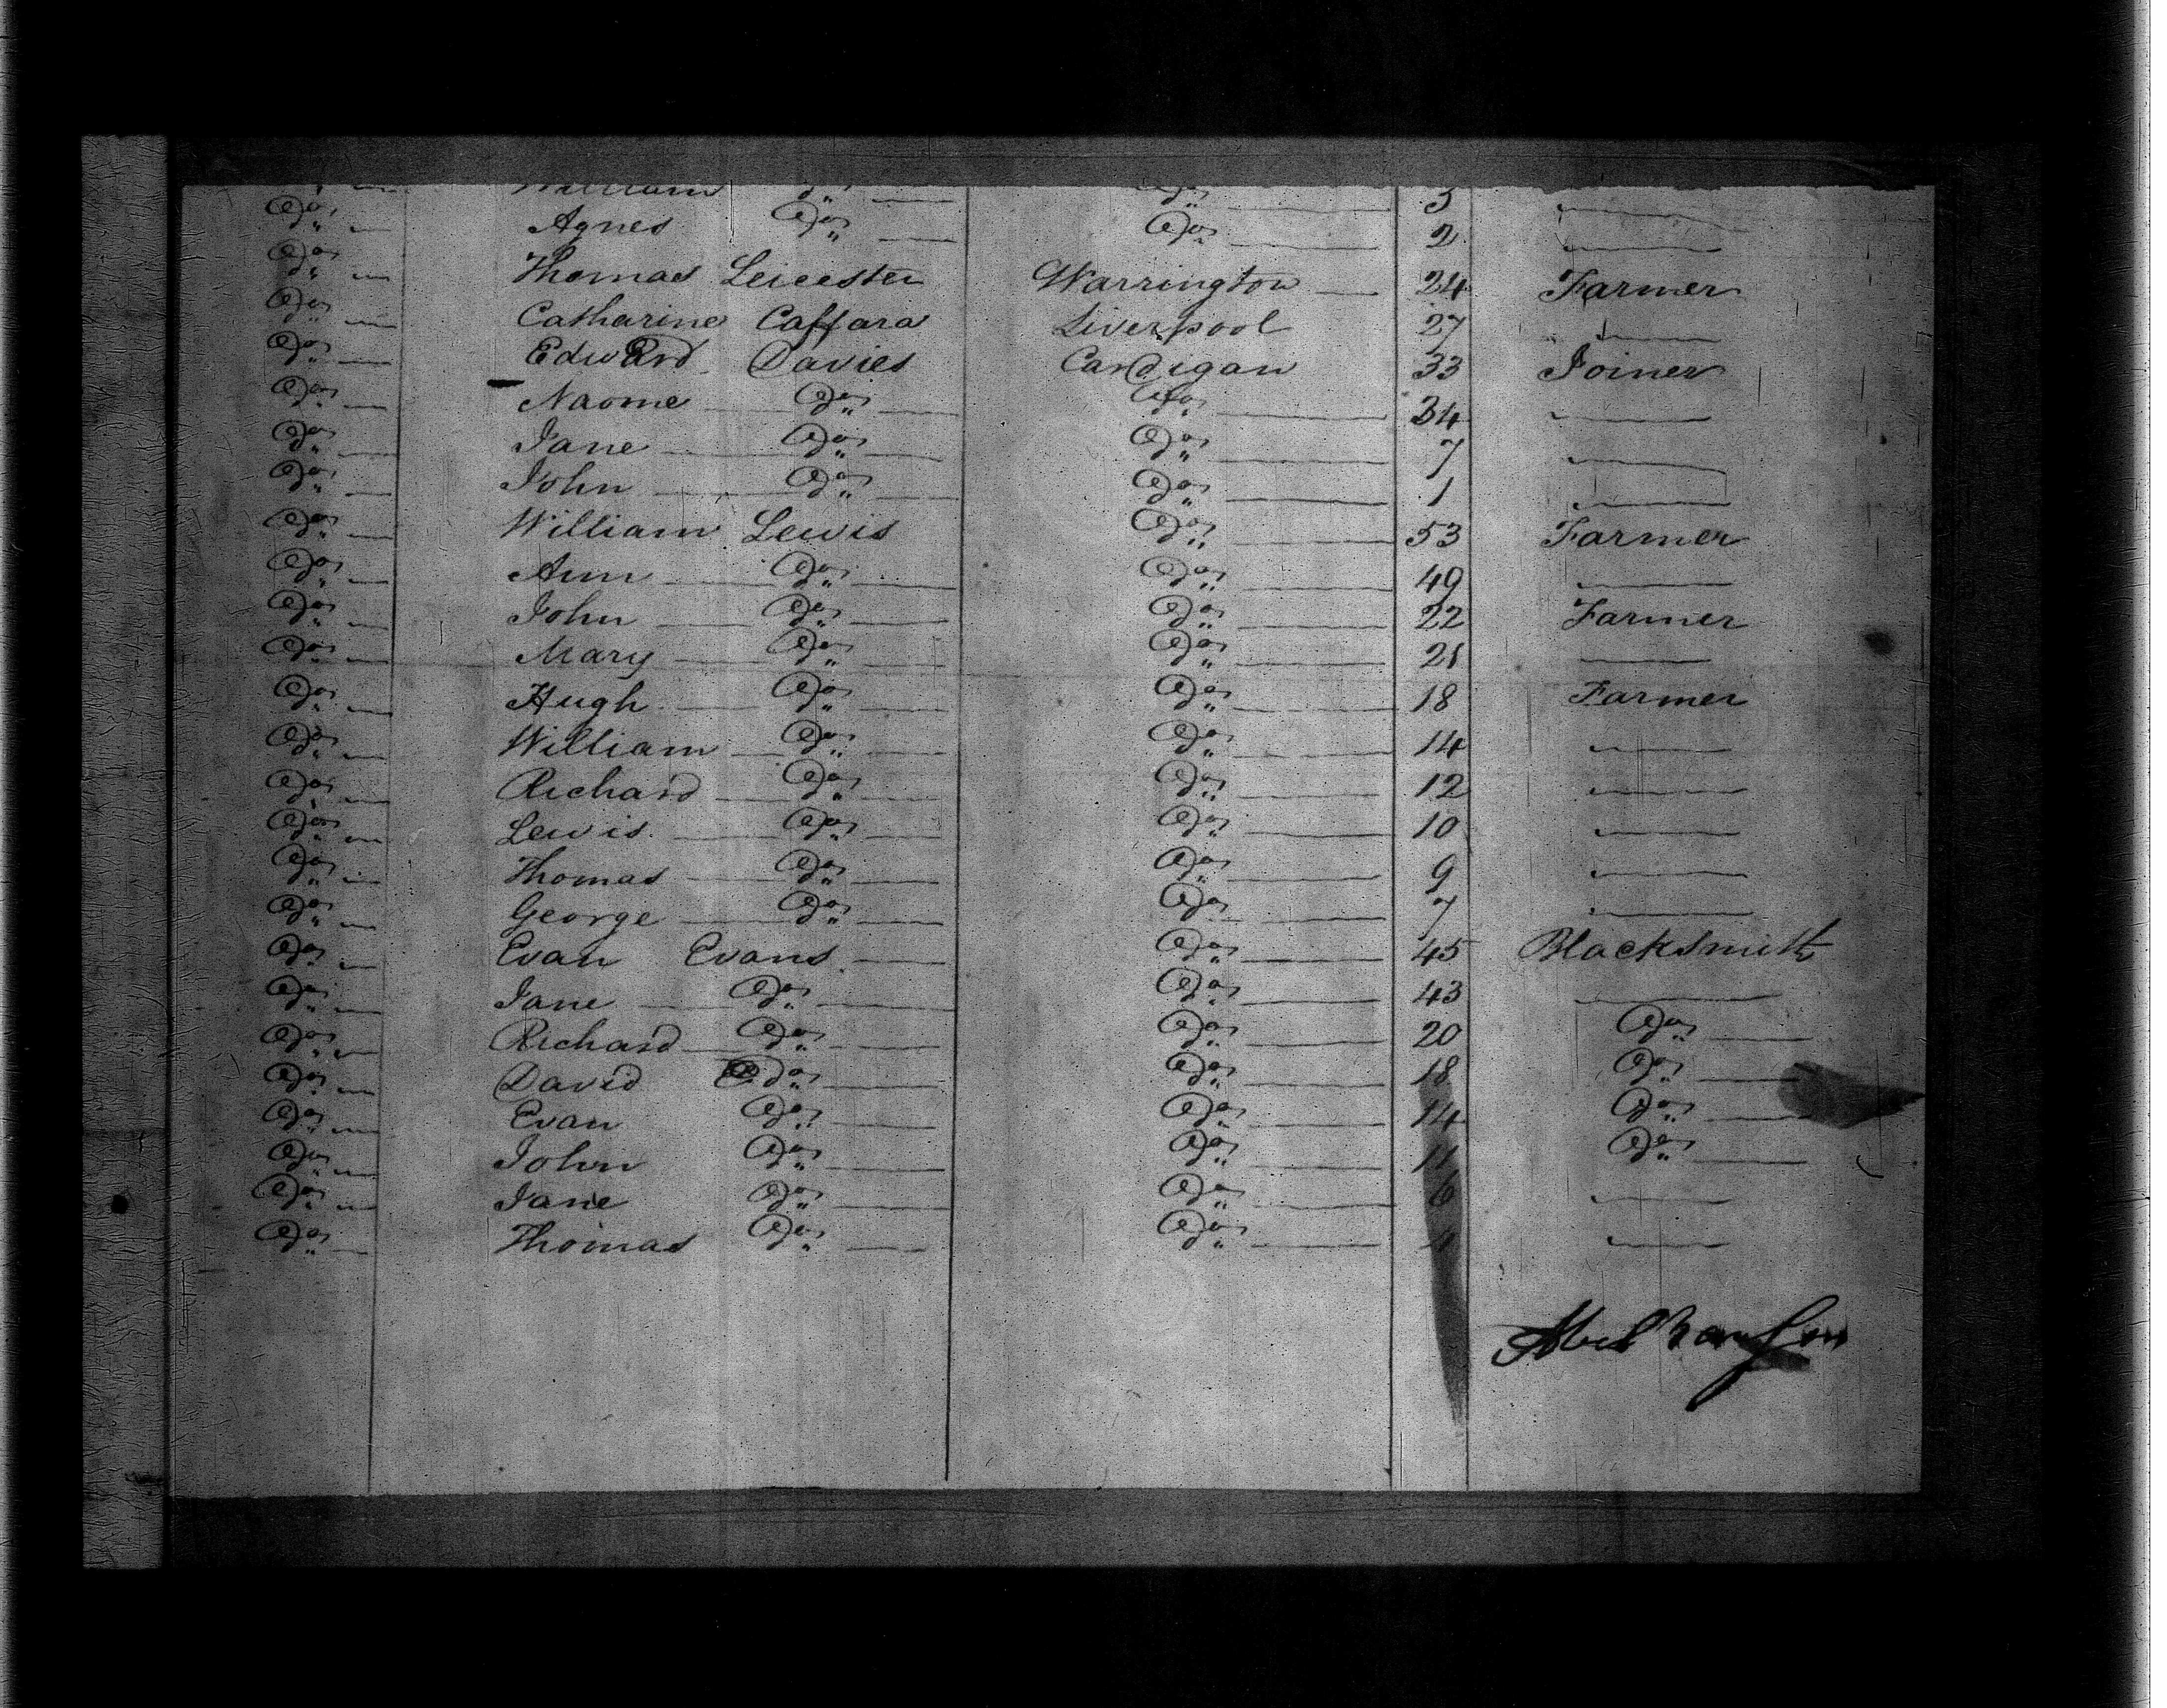 Do William Do Do 3
Do Agnes Do Do 2
Do Thomas Leicester Warrington 24 Farmer
Do Catharine Caffara Liverpool 27
Do Edward Davies Cardigan 33 Joiner
Do Naome Do Do 34
Do Jane Do Do 7
Do John Do Do 1
Do William Lewis Do 53 Farmer
Do Ann Do Do 49
Do John Do Do 22 Farmer
Do Mary Do Do 21
Do Hugh Do Do 18 Farmer
Do William Do Do 14
Do Richard Do Do 12
Do Lewis Do Do 10
Do Thomas Do Do 9
Do George Do Do 7
Do Evan Evans Do 45 Blacksmith
Do Jane Do Do 43
Do Richard Do Do 20 Do
Do David Do Do 18 Do
Do Evan Do Do 14 Do
Do John Do Do 11 Do
Do Jane Do Do 6
Do Thomas Do Do